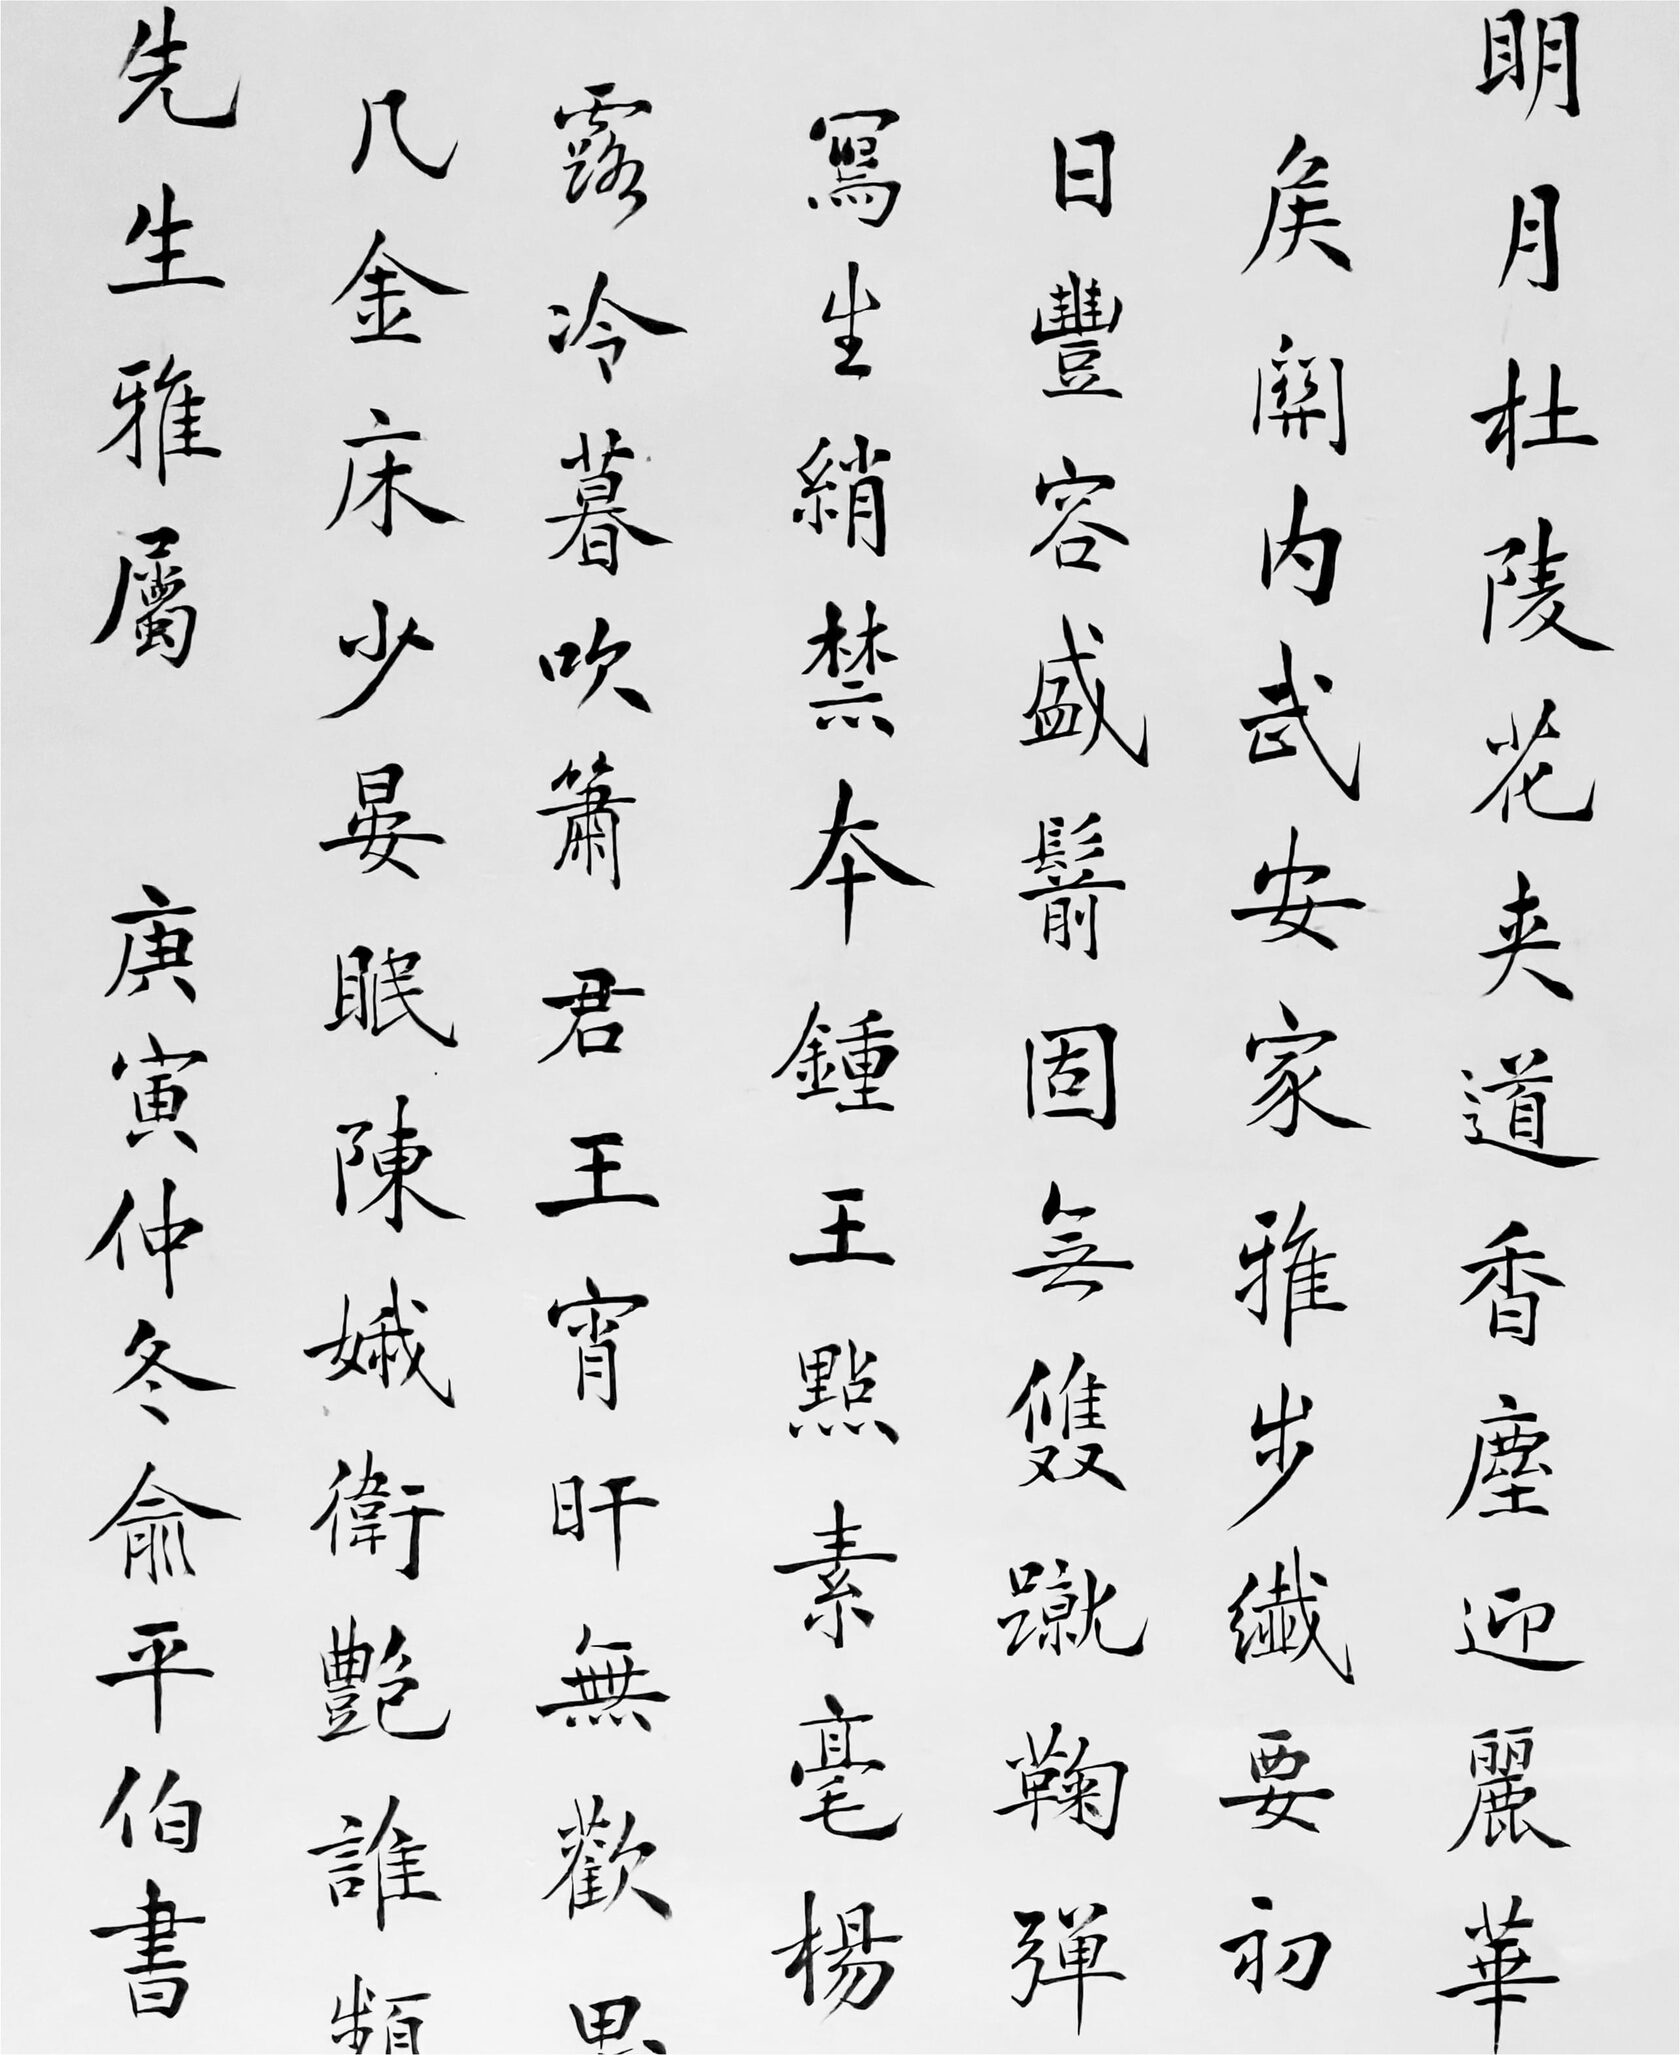 明月杜陵花夾道香塵迎麗華
矦關内武安家雅步纖要初
日豐容盛鬋固無雙蹴鞠彈
寫生綃禁本鍾王點素毫楊
露冷暮吹簫君王宵旰無歡
几金床少晏眠陳娥衛艷誰頻
先生雅屬 庚寅仲冬俞平伯書